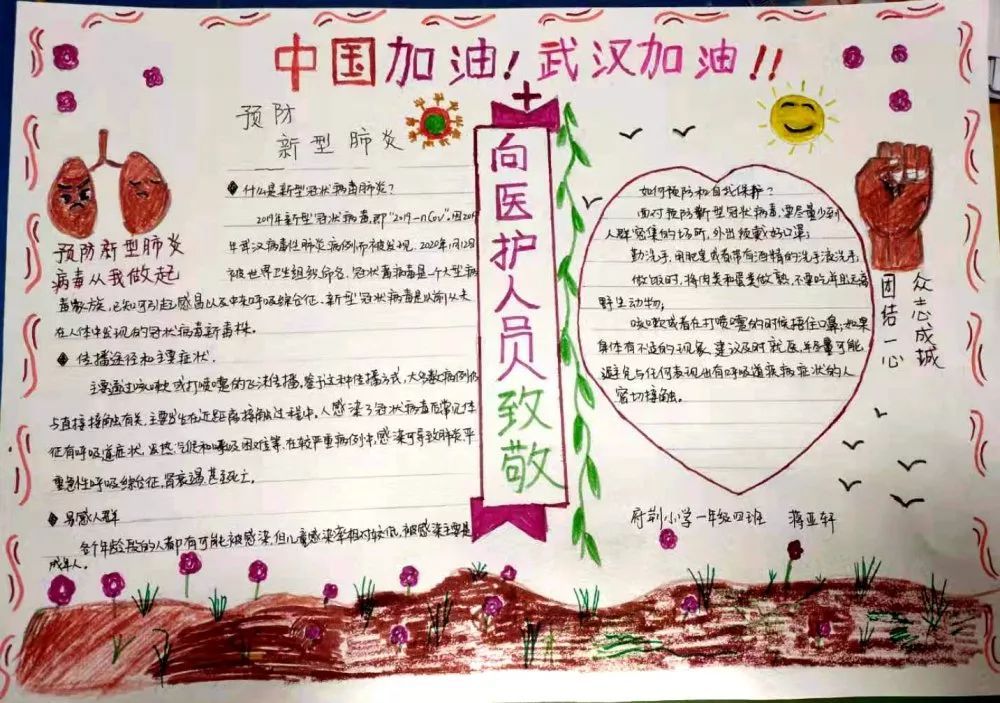 中国加油！武汉加油！！
预防
新型肺炎
◆什么是新型冠状病毒肺炎？
2019年新型冠状病毒,即"2019-nCoV".因2019
年武汉病毒性肺炎病例而被发现,2020年1月12日
被世界卫生组织命名,冠状病毒是一个大型病
毒家族,已知可引起感冒以及中东呼吸综合征.新型冠状病毒是以前从未
在人体中发现的冠状病毒新毒株.
◆传播途径和主要症状.
主要通过咳嗽或打喷嚏的飞沫传播,鉴于这种传播方式,大多数病例
与直接接触有关,主要发生在近距离接触过程中.人感染了冠状病毒后常见体
征有呼吸道症状,发热,气促和呼吸困难等,在较严重病例中,感染可导致肺炎,严
重急性呼吸综合征,肾衰竭,甚至死亡.
◆易感人群
各个年龄段的人都有可能被感染,但儿童感染率相对较低,被感染主要是
成年人。
预防新型肺炎
病毒从我做起
向医护人员致敬
如何预防和自我保护？
面对预防新型冠状病毒,要尽量少到
人群密集的场所,外出须戴好口罩;
勤洗手,用肥皂或者带有酒精的洗手液洗手;
做饭时,将肉类和蛋类做熟,不要吃并且远离
野生动物;
咳嗽或者在打喷嚏的时候捂住口鼻;如果
身体有不适的现象,建议及时就医,并尽量可能
避免与任何表现出有呼吸道疾病症状的人
密切接触。
众志成城
团结一心
府前小学一年级四班 蒋亚轩